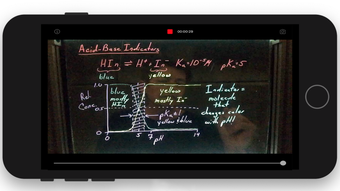 00:00:28
Acid-Base Indicators
HIn ⇌ H⁺ + In⁻ Ka=10⁻⁵M pKa=5
blue yellow
1.0
Rel.
Conc.
0.5
0
blue
mostly
HIn
yellow
mostly In⁻
pKa=
yellow + blue
5 7 14
pH
Indicator =
Molecule
that
changes color
with pH!